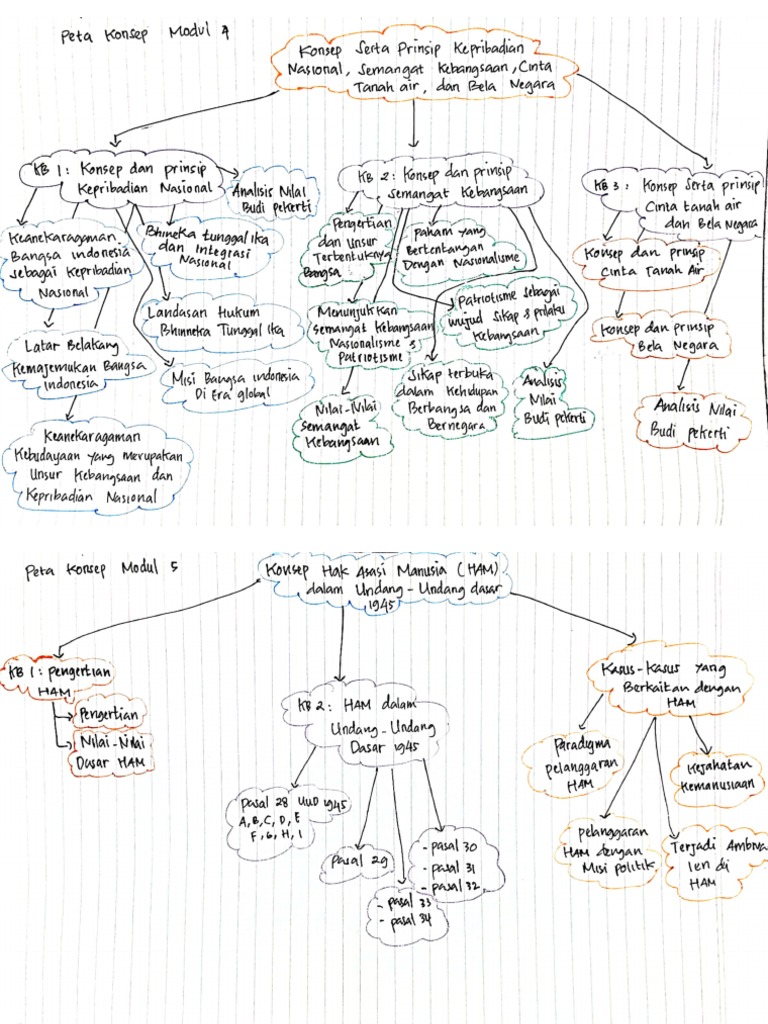 Peta Konsep Modul 4
Konsep Serta Prinsip Kepribadian
Nasional, Semangat Kebangsaan, Cinta
Tanah air, dan Bela Negara
KB 1 : Konsep dan prinsip
Kepribadian Nasional
Analisis Nilai
Budi pekerti
Keanekaragaman
Bangsa indonesia
sebagai Kepribadian
Nasional
Bhineka tunggal ika
dan Integrasi
Nasional
Landasan Hukum
Bhinneka Tunggal Ika
Latar Belakang
Kemajemukan Bangsa
Indonesia
Misi Bangsa indonesia
Di Era global
Keanekaragaman
Kebudayaan yang merupakan
Unsur Kebangsaan dan
Kepribadian Nasional
KB 2 : Konsep dan prinsip
Semangat Kebangsaan
Pengertian
dan Unsur
Terbentuknya
Bangsa
Paham yang
Bertentangan
Dengan Nasionalisme
Menunjukkan
semangat kebangsaan
Nasionalisme &
Patriotisme
Patriotisme sebagai
wujud Sikap & prilaku
Kebangsaan
Nilai-Nilai
semangat
Kebangsaan
Sikap terbuka
dalam Kehidupan
Berbangsa dan
Bernegara
Analisis
Nilai
Budi pekerti
KB 3 : Konsep Serta prinsip
Cinta tanah air
dan Bela Negara
Konsep dan prinsip
Cinta Tanah Air
Konsep dan prinsip
Bela Negara
Analisis Nilai
Budi pekerti
Peta Konsep Modul 5
Konsep Hak Asasi Manusia (HAM)
dalam Undang-Undang dasar
1945
KB 1 : pengertian
HAM
Pengertian
Nilai-Nilai
Dasar HAM
KB 2 : HAM dalam
Undang-Undang
Dasar 1945
Pasal 28 UUD 1945
A, B, C, D, E
F, G, H, I
Pasal 29
- pasal 33
- pasal 34
- pasal 30
- pasal 31
- pasal 32
Kasus-Kasus yang
Berkaitan dengan
HAM
Paradigma
pelanggaran
HAM
Kejahatan
Kemanusiaan
pelanggaran
HAM dengan
Misi politik
Terjadi Ambiva
len di
HAM